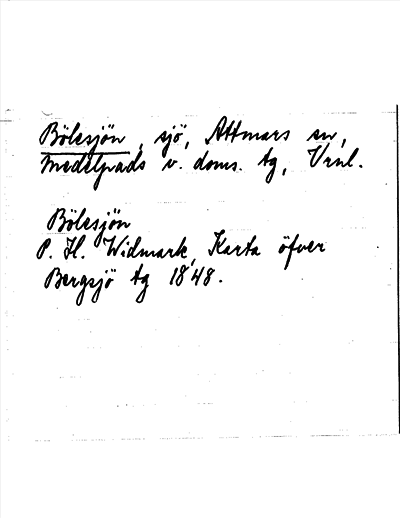 Bölesjön, sjö, Attmars sn,
Medelpads v. doms. tg, Vrnl.
Bölesjön
P. H. Widmark, Karta öfver
Bergsjö tg 1848.